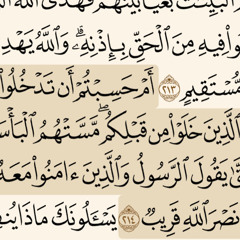 ٱلۡبَيِّنَٰتُ بَغۡيَۢا بَيۡنَهُمۡۖ فَهَدَى ٱللَّهُ
فِيهِ مِنَ ٱلۡحَقِّ بِإِذۡنِهِۦۗ وَٱللَّهُ يَهۡدِ
مُّسۡتَقِيمٍ ٢١٣ أَمۡ حَسِبۡتُمۡ أَن تَدۡخُلُواْ
ٱلَّذِينَ خَلَوۡاْ مِن قَبۡلِكُمۖ مَّسَّتۡهُمُ ٱلۡبَأۡسَ
يَقُولَ ٱلرَّسُولُ وَٱلَّذِينَ ءَامَنُواْ مَعَهُ
نَصۡرَ ٱللَّهِ قَرِيبٞ ٢١٤ يَسۡـَٔلُونَكَ مَاذَا يُنفِ